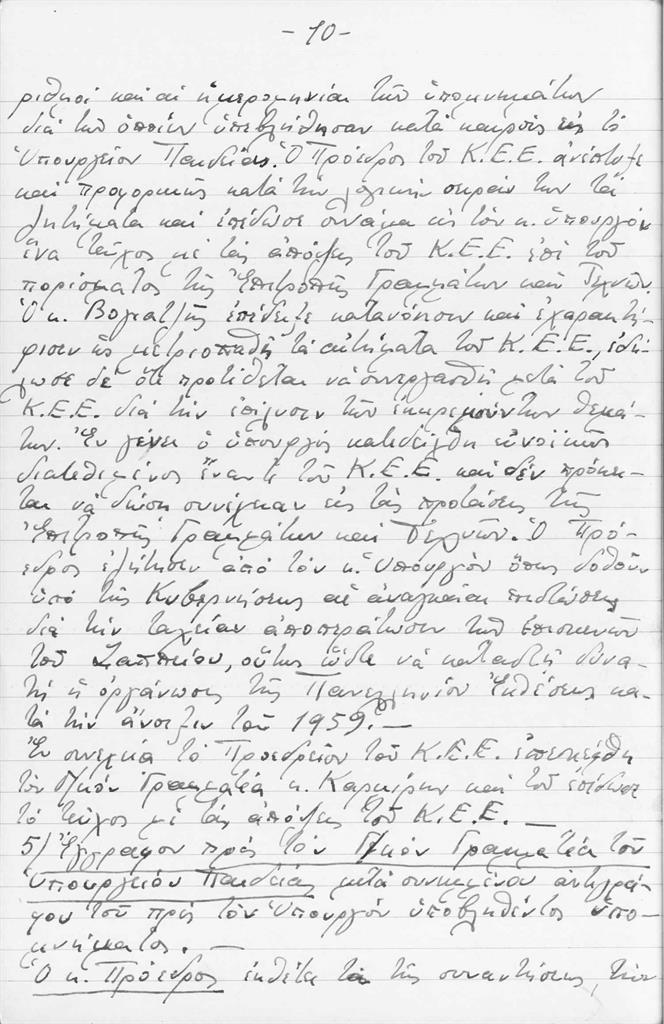 - 10 -
ριθμοί καί αἱ ἡμερομηνίαι τῶν ὑπομνημάτων
διά τῶν ὁποίων ὑπεβλήθησαν κατά καιρούς εἰς τό
Ὑπουργεῖον Παιδείας. Ὁ Πρόεδρος τοῦ Κ.Ε.Ε. ἀνέπτυξε
καί προφορικῶς κατά τήν λογικήν σειράν των τά
ζητήματα καί ἐπέδωσε συνάμα εἰς τόν κ. Ὑπουργόν
ἕνα τεῦχος μέ τάς ἀπόψεις τοῦ Κ.Ε.Ε. ἐπί τοῦ
πορίσματος τῆς Ἐπιτροπῆς Γραμμάτων καί Τεχνῶν.
Ὁ κ. Βογιατζῆς ἐπέδειξε κατανόησιν καί ἐχαρακτή-
ρισεν ὡς μετριοπαθῆ τά αἰτήματα τοῦ Κ.Ε.Ε., ἐδή-
λωσε δέ ὅτι προτίθεται νά συνεργασθῇ μετά τοῦ
Κ.Ε.Ε. διά τήν ἐπίλυσιν τῶν ἐκκρεμούντων θεμά-
των. Ἐν γένει ὁ ὑπουργός κατεδείχθη εὐνοϊκῶς
διατεθειμένος ἔναντι τοῦ Κ.Ε.Ε. καί δέν πρόκει-
ται νά δώσῃ συνέχειαν εἰς τάς προτάσεις τῆς
Ἐπιτροπῆς Γραμμάτων καί Τεχνῶν. Ὁ Πρό-
εδρος ἐζήτησεν ἀπό τόν κ. Ὑπουργόν ὅπως δοθοῦν
ὑπό τῆς Κυβερνήσεως αἱ ἀναγκαῖαι πιστώσεις
διά τήν ταχεῖαν ἀποπεράτωσιν τῶν ἐπισκευῶν
τοῦ Ζαππείου, οὕτως ὥστε νά καταστῇ δυνα-
τή ἡ ὀργάνωσις τῆς Πανελληνίου Ἐκθέσεως κα-
τά τήν ἄνοιξιν τοῦ 1959. —
Ἐν συνεχείᾳ τό Προεδρεῖον τοῦ Κ.Ε.Ε. ἐπεσκέφθη
τόν Γ/κόν Γραμματέα κ. Καρμίρην καί τοῦ ἐπέδωσε
τό τεῦχος μέ τάς ἀπόψεις τοῦ Κ.Ε.Ε. —
5) Ἔγγραφον πρός τόν Γ/κόν Γραμματέα τοῦ
Ὑπουργείου Παιδείας μετά συνημμένου ἀντιγρά-
φου τοῦ πρός τόν Ὑπουργόν ὑποβληθέντος ὑπο-
μνήματος. —
Ὁ κ. Πρόεδρος ἐκθέτει τά τῆς συναντήσεως, τήν